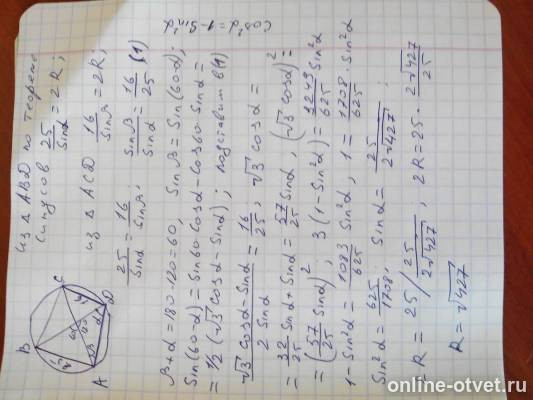 из △ ABD по теореме
синусов 25/Sinα = 2R;
из △ ACD 16/Sinβ = 2R;
25/Sinα = 16/Sinβ; Sinβ/Sinα = 16/25 (1)
β+α = 180-120 = 60, Sinβ = Sin(60-α);
Sin(60-α) = Sin60·Cosα - Cos60·Sinα =
= 1/2 (√3 Cosα - Sinα); подставим в (1)
(√3 Cosα - Sinα)/(2 Sinα) = 16/25, √3 Cosα =
= 32/25 Sinα + Sinα = 57/25 Sinα, (√3 Cosα)² =
= (57/25 Sinα)²; 3(1-Sin²α) = 3249/625 Sin²α
1-Sin²α = 1083/625 Sin²α, 1 = 1708/625 Sin²α
Sin²α = 625/1708, Sinα = 25/2√427;
R = 25 / 25/2√427; 2R = 25·2√427/25
R = √427
Cos²α = 1-Sin²α
B
C
A
D
online-otvet.ru